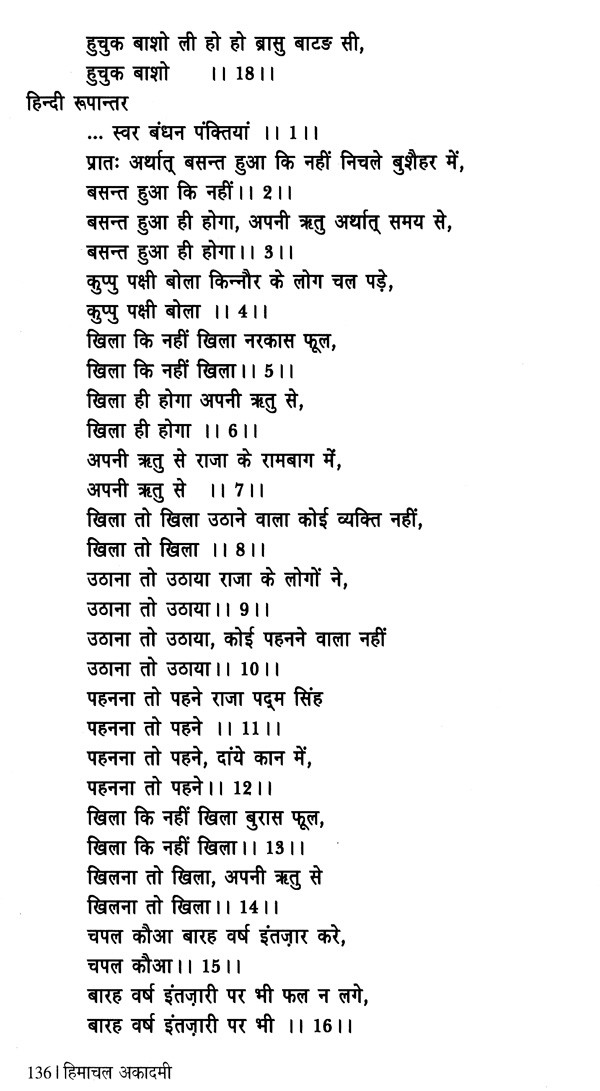 हुचुक बाशो ली हो हो ब्रासु बाटङ सी,
हुचुक बाशो ।। 18।।
हिन्दी रूपान्तर
... स्वर बंधन पंक्तियां ।। 1।।
प्रातः अर्थात् बसन्त हुआ कि नहीं निचले बुशैहर में,
बसन्त हुआ कि नहीं।। 2।।
बसन्त हुआ ही होगा, अपनी ऋतु अर्थात् समय से,
बसन्त हुआ ही होगा।। 3।।
कुप्पु पक्षी बोला किन्नौर के लोग चल पड़े,
कुप्पु पक्षी बोला ।। 4।।
खिला कि नहीं खिला नरकास फूल,
खिला कि नहीं खिला।। 5।।
खिला ही होगा अपनी ऋतु से,
खिला ही होगा ।। 6।।
अपनी ऋतु से राजा के रामबाग में,
अपनी ऋतु से ।। 7।।
खिला तो खिला उठाने वाला कोई व्यक्ति नहीं,
खिला तो खिला ।। 8।।
उठाना तो उठाया राजा के लोगों ने,
उठाना तो उठाया।। 9।।
उठाना तो उठाया, कोई पहनने वाला नहीं
उठाना तो उठाया।। 10।।
पहनना तो पहने राजा पद्म सिंह
पहनना तो पहने ।। 11।।
पहनना तो पहने, दांये कान में,
पहनना तो पहने।। 12।।
खिला कि नहीं खिला बुरास फूल,
खिला कि नहीं खिला।। 13।।
खिलना तो खिला, अपनी ऋतु से
खिलना तो खिला।। 14।।
चपल कौआ बारह वर्ष इंतज़ार करे,
चपल कौआ।। 15।।
बारह वर्ष इंतज़ारी पर भी फल न लगे,
बारह वर्ष इंतज़ारी पर भी ।। 16।।
136।हिमाचल अकादमी